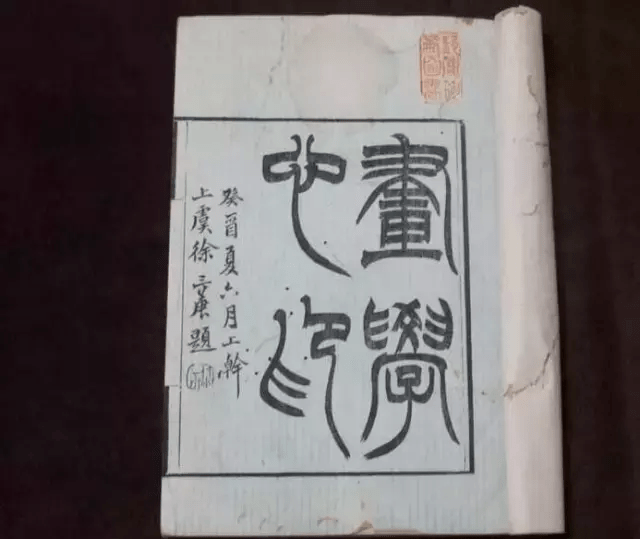 畫學
心印
癸酉夏六月上澣
上虞徐三庚題